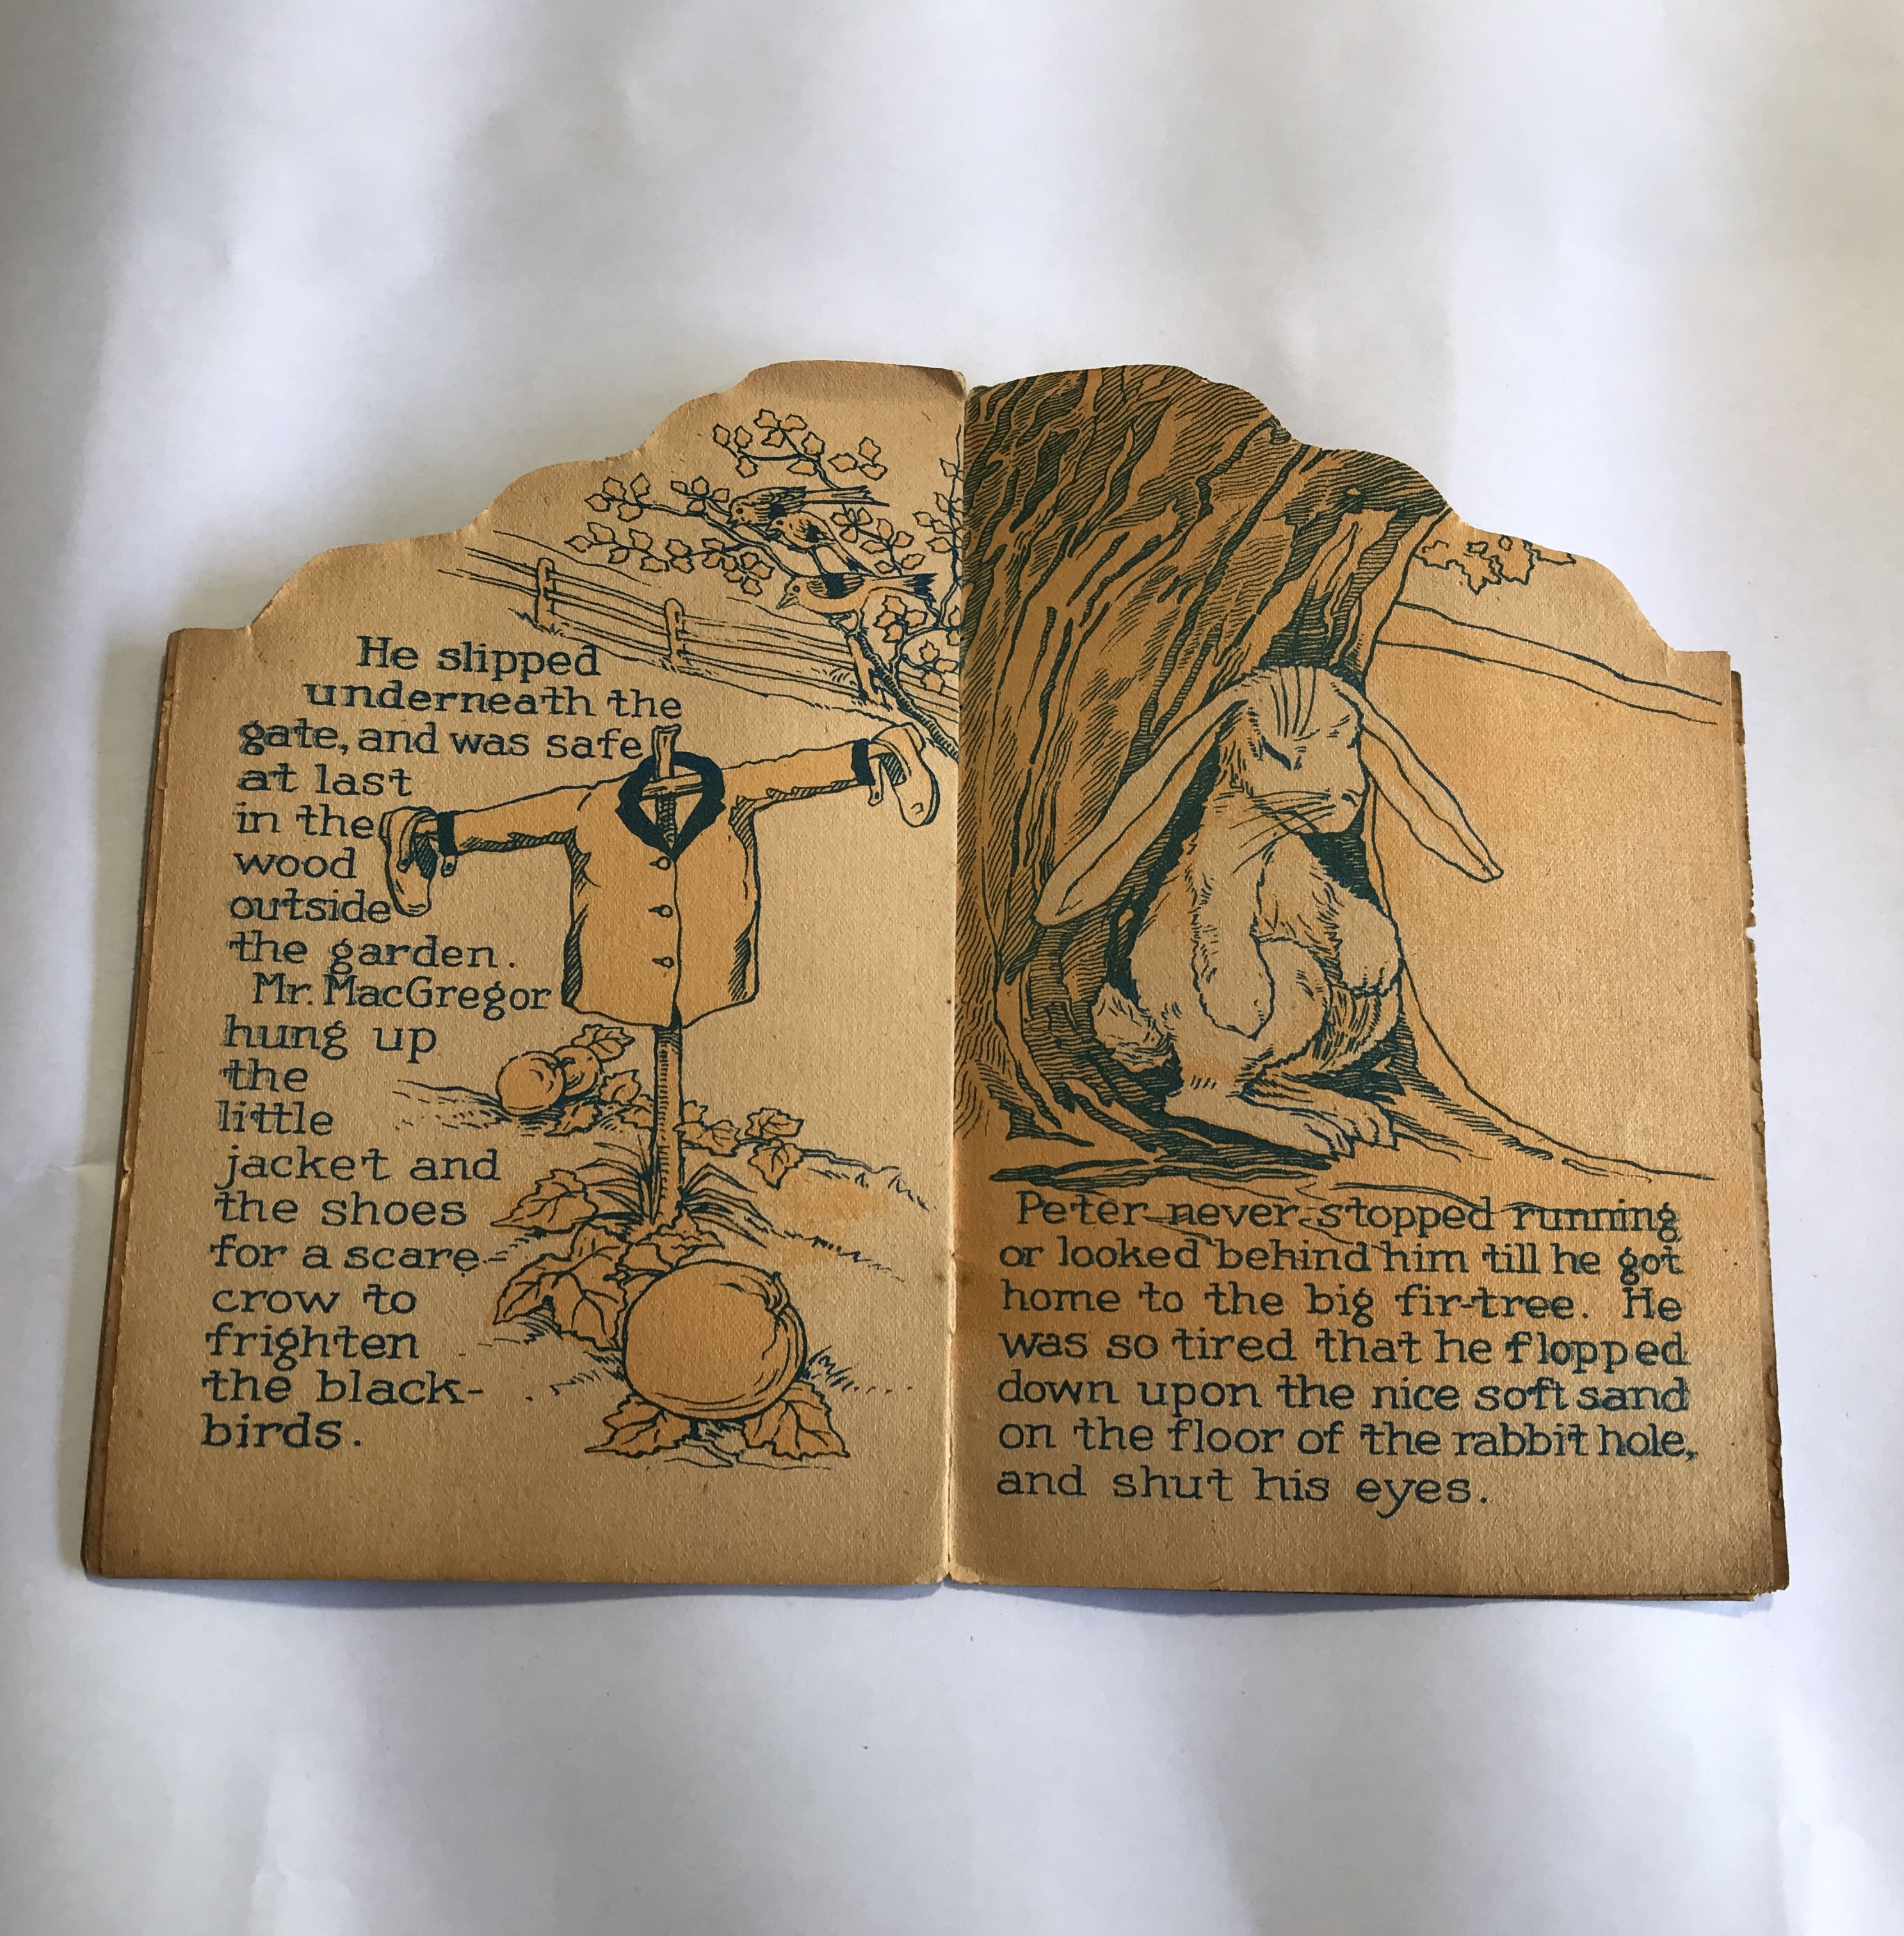 He slipped
underneath the
gate, and was safe
at last
in the
wood
outside
the garden.
Mr. MacGregor
hung up
the
little
jacket and
the shoes
for a scare-
crow to
frighten
the black-
birds.
Peter never stopped running
or looked behind him till he got
home to the big fir-tree. He
was so tired that he flopped
down upon the nice soft sand
on the floor of the rabbit hole,
and shut his eyes.